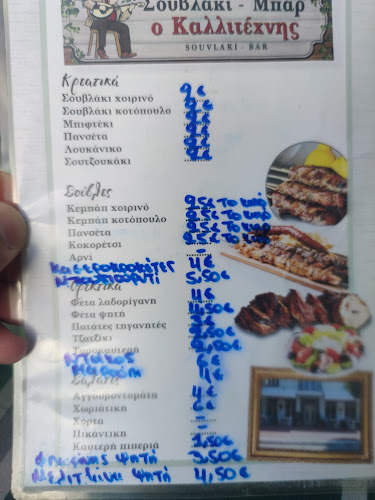 Σουβλάκι - Μπαρ
ο Καλλιτέχνης
SOUVLAKI - BAR
Κρεατικά
Σουβλάκι χοιρινό 2€
Σουβλάκι κοτόπουλο 2€
Μπιφτέκι 2€
Πανσέτα 2€
Λουκάνικο 2€
Σουτζουκάκι
Σούβλες
Κεμπάπ χοιρινό 25€ Το κιλό
Κεμπάπ κοτόπουλο 25€ Το κιλό
Πανσέτα 25€ Το κιλό
Κοκορέτσι 25€ Το κιλό
Αρνί -
4€
Μπουγιουρντί 5,50€
Ορεκτικά
Φέτα λαδορίγανη 4€
Φέτα ψητή 4,50€
Πατάτες τηγανητές
Τζατζίκι
Τυροκαυτερή
Ντάκος 6€
Μαρούλι 4€
Σαλάτες
Αγγουροντομάτα 4€
Χωριάτικη 6€
Χόρτα -
Πικάντικη -
Καυτερή πιπεριά 1,50€
ψητή 3,50€
ψητή 4,50€